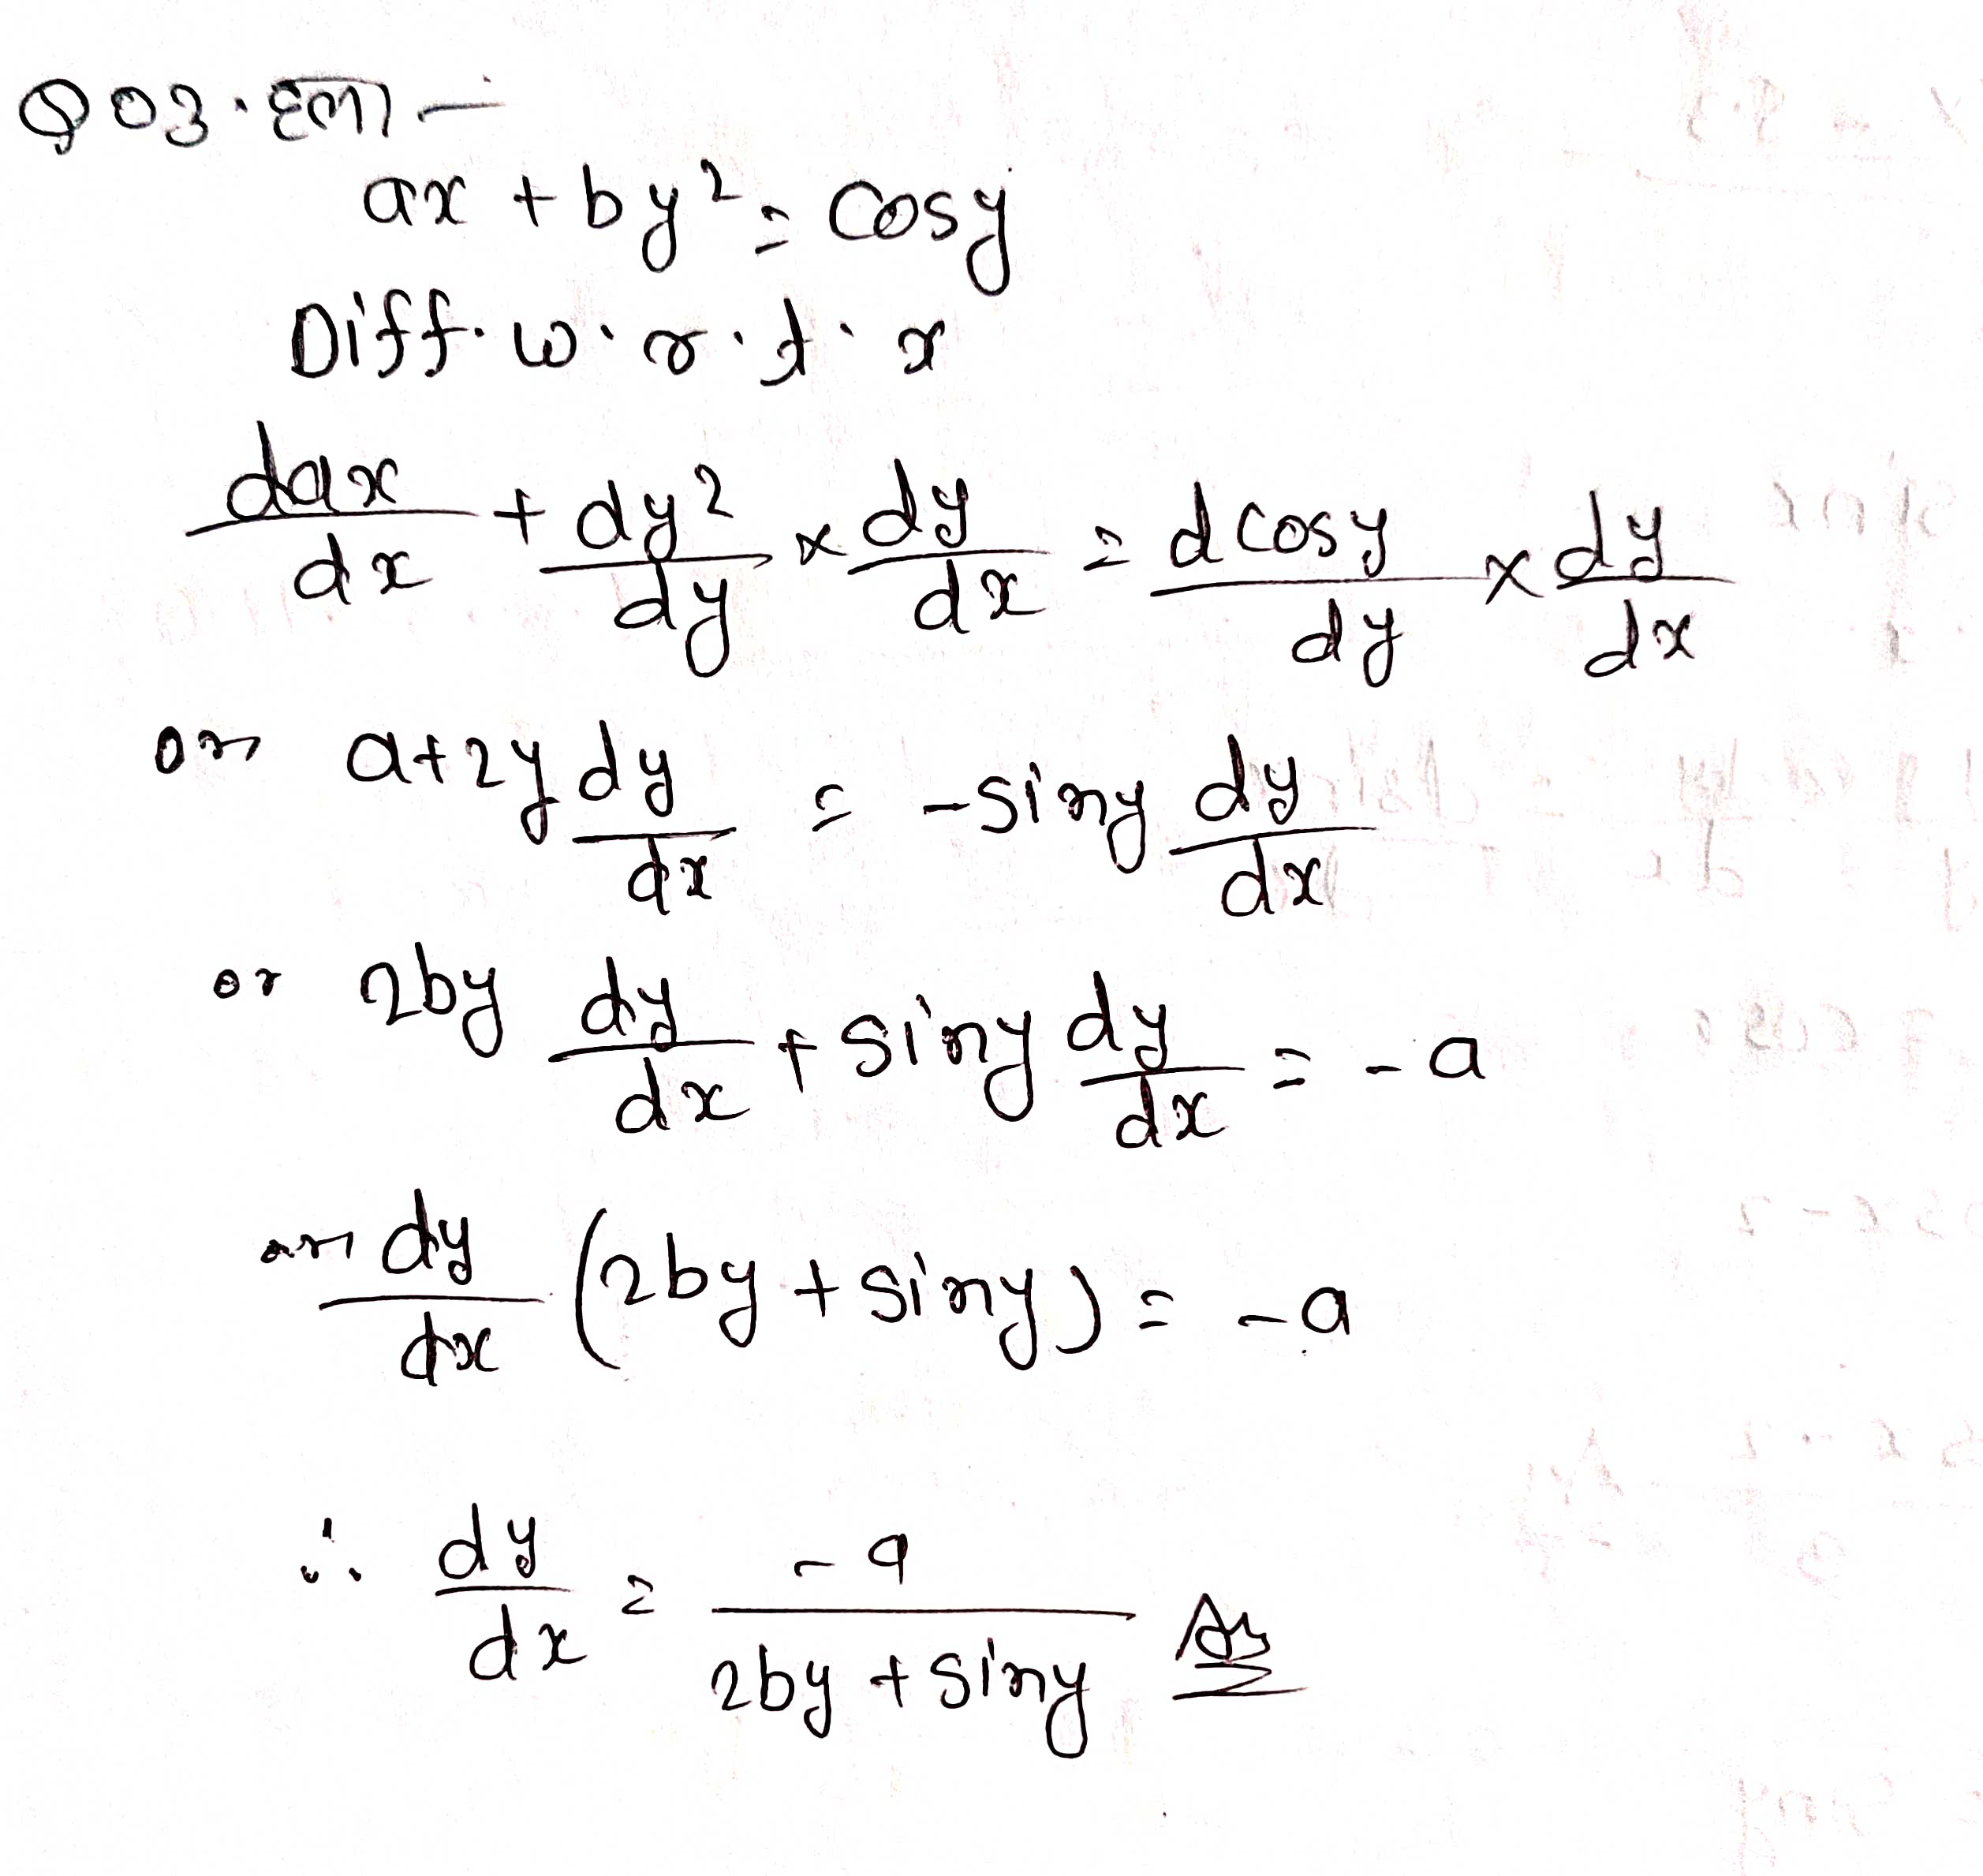 Q03. हल -
ax + by² = cosy
Diff. w.r.t. x
dax/dx + dy²/dy × dy/dx = dcosy/dy × dy/dx
or a+2y dy/dx = -siny dy/dx
or 2by dy/dx + siny dy/dx = -a
or dy/dx (2by + siny) = -a
∴ dy/dx = -a/(2by + siny) Ans